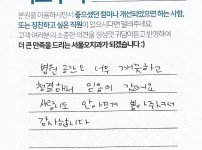 본원을 이용하시면서 좋으셨던 점이나 개선되었으면 하는 사항,
또는 칭찬하고 싶은 직원이 있으시다면 알려주세요.
고객 여러분의 소중한 의견을 정성껏 귀담아듣고 반영하여
더 큰 만족을 드리는 서울오지과가 되겠습니다 :)
병원 공간도 너무 깨끗하고
청결해서 믿음이 갔어요
사랑니도 안아프게 빼 주셔서
감사합니다